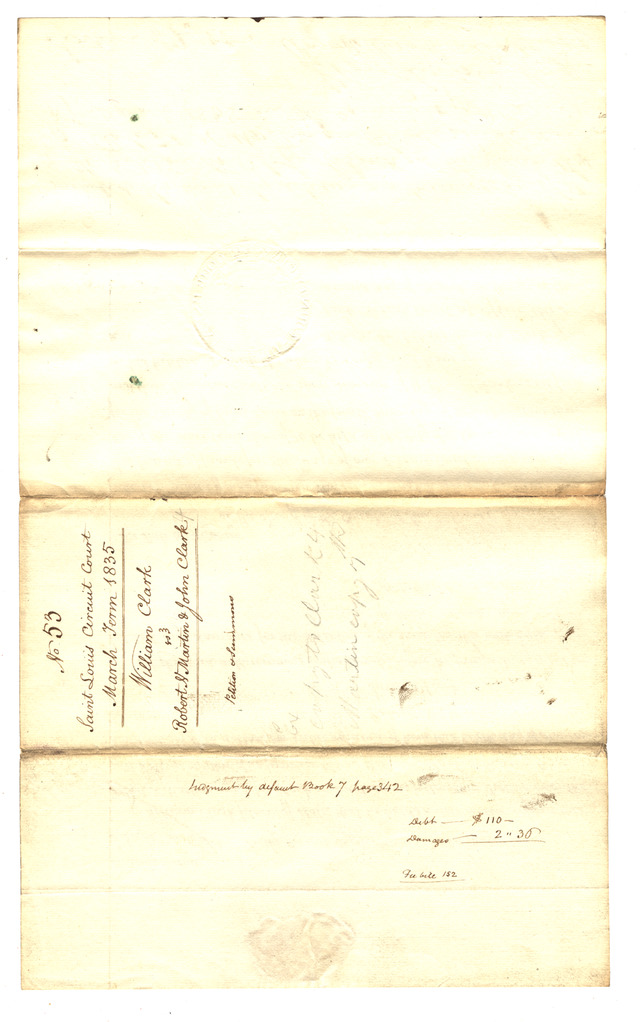 No 53
Saint Louis Circuit Court
March Term 1835
William Clark
vs
Robert N Martin & John Clark
Petition & Summons
copy to Clark
Martin copy
Judgment by default Book 7 page 342
Debt — $110 —
Damages — 2 " 36
Fee bill 152